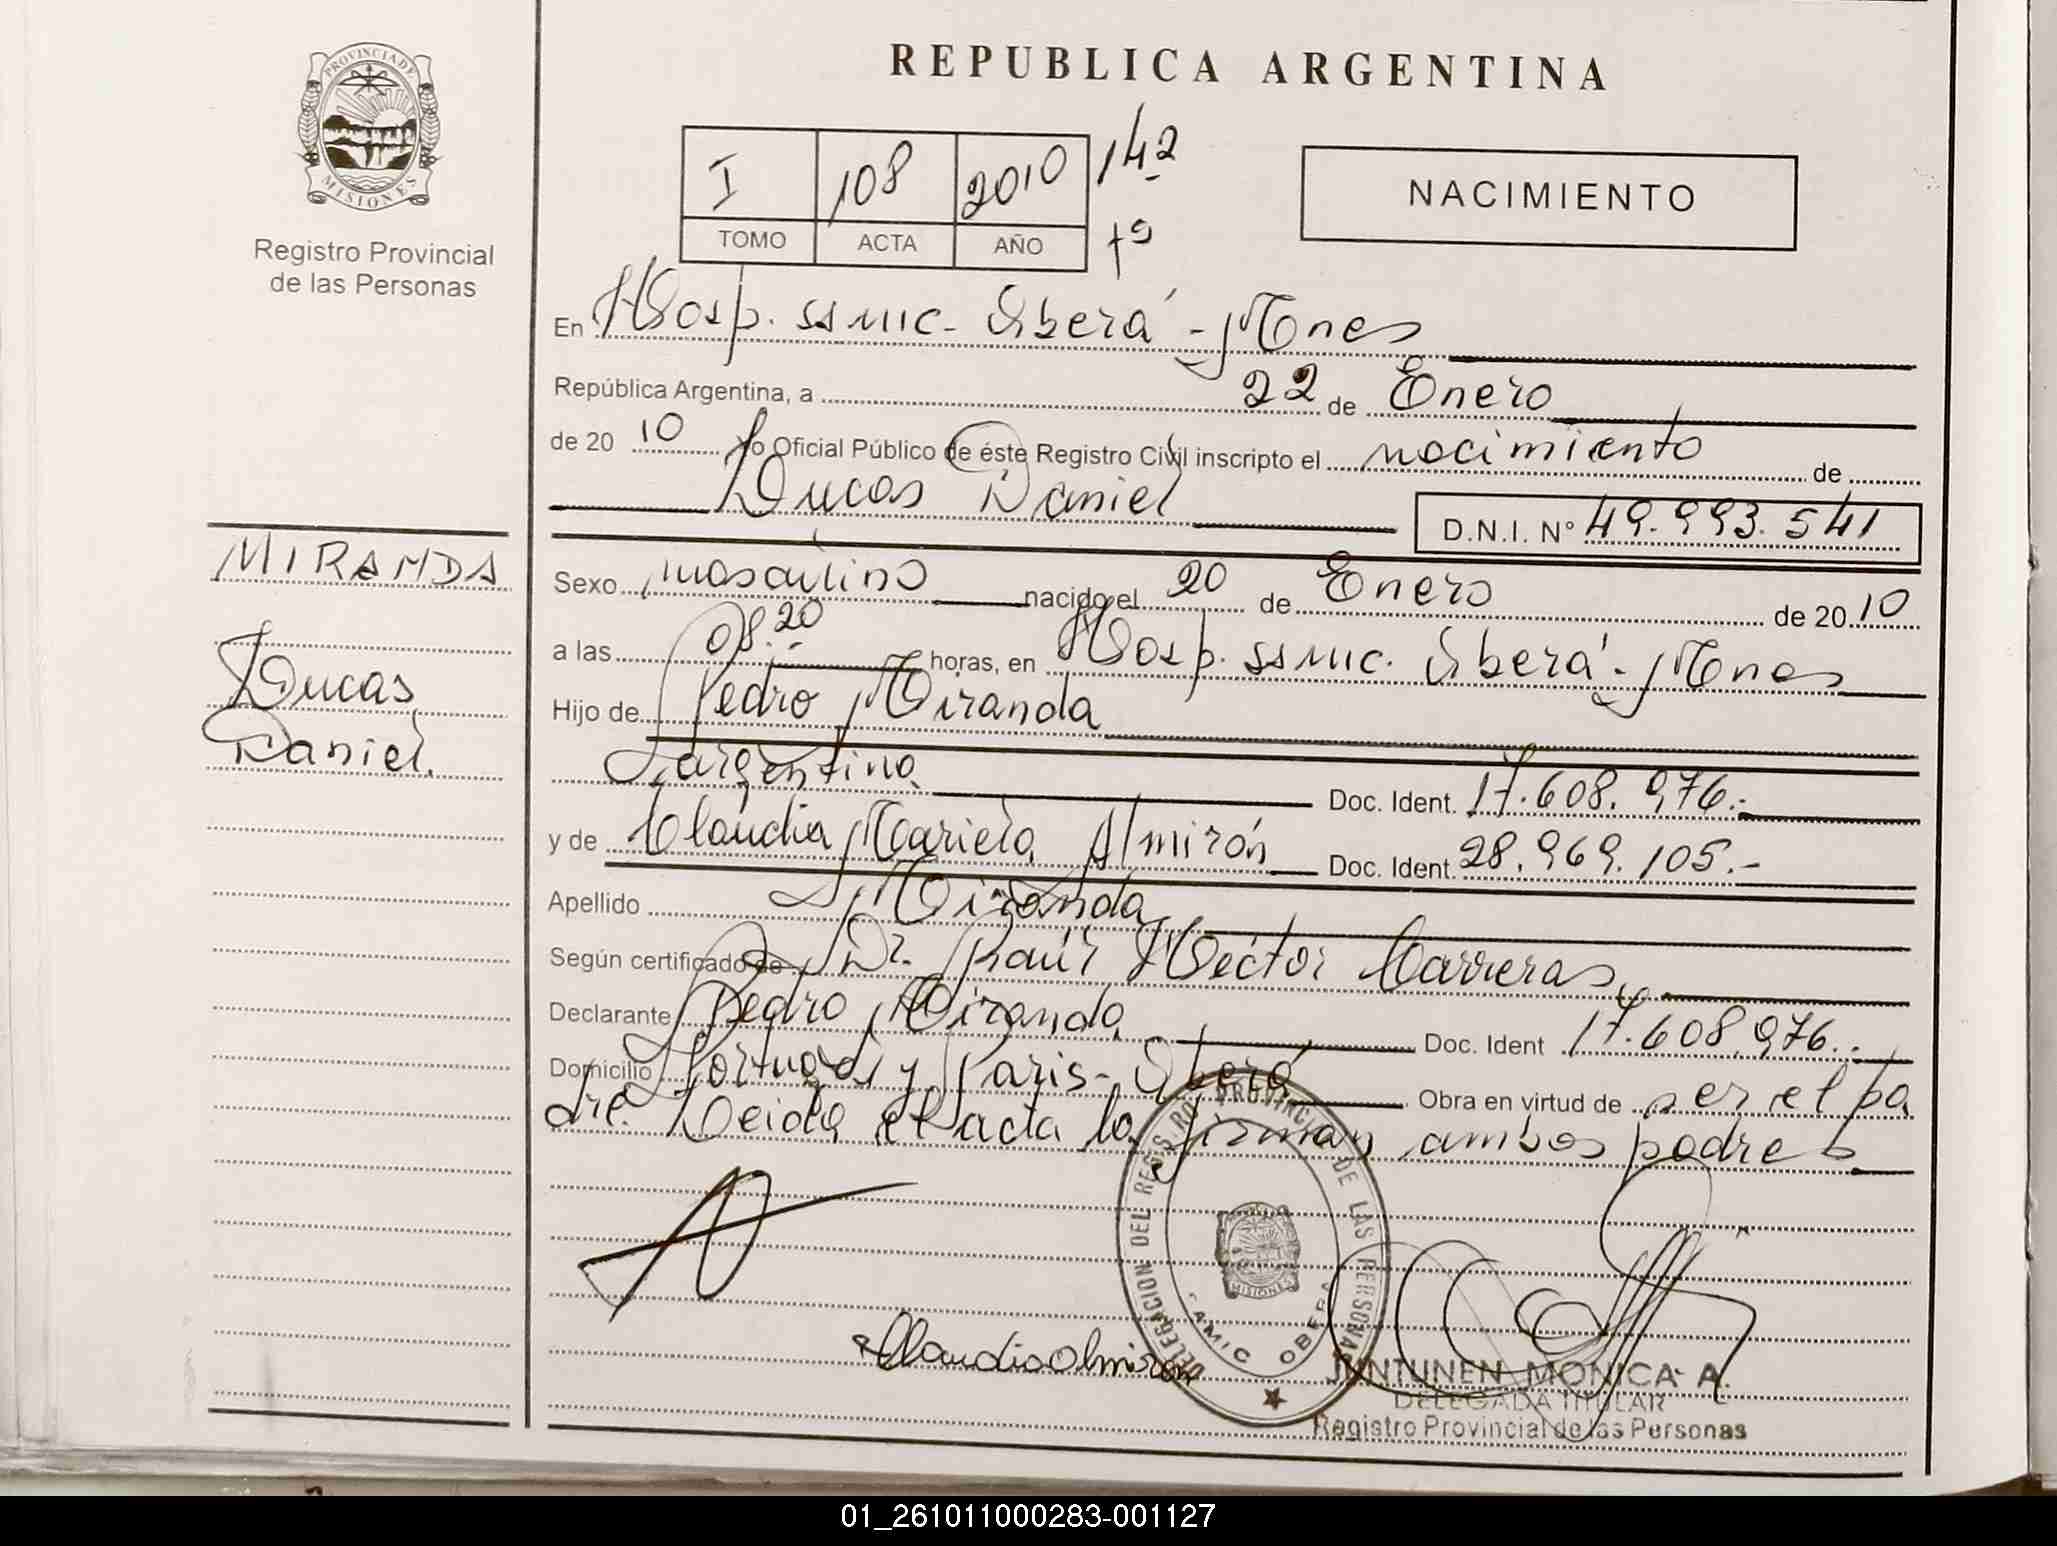 REPUBLICA ARGENTINA
PROVINCIA DE MISIONES
Registro Provincial
de las Personas
I 108 2010 142
TOMO ACTA AÑO
NACIMIENTO
En Hosp. SSMIC. Oberá - Mnes
República Argentina, a 22 de Enero
de 2010 Yo Oficial Público de éste Registro Civil inscripto el nacimiento de
Lucas Daniel D.N.I. Nº 49.993.541
MIRANDA
Lucas
Daniel.
Sexo masculino nacido el 20 de Enero de 2010
a las 08.20 horas, en Hosp. SSMIC. Oberá - Mnes
Hijo de Pedro Miranda
argentina Doc. Ident. 17.608.976.-
y de Claudia Mariela Almirón Doc. Ident. 28.969.105.-
Apellido Miranda
Según certificado de Dr. Raúl Héctor Carreras
Declarante Pedro Miranda Doc. Ident 17.608.976.-
Domicilio Portugal y Paris - Oberá Obra en virtud de ser el pa
dre. Leida el acta la firman ambos padres
DELEGACION DEL REGISTRO PROVINCIAL DE LAS PERSONAS
MISIONES
SAMIC OBERA
Claudia Almiron
JUNTUNEN MONICA A.
DELEGADA TITULAR
Registro Provincial de las Personas
01_261011000283-001127